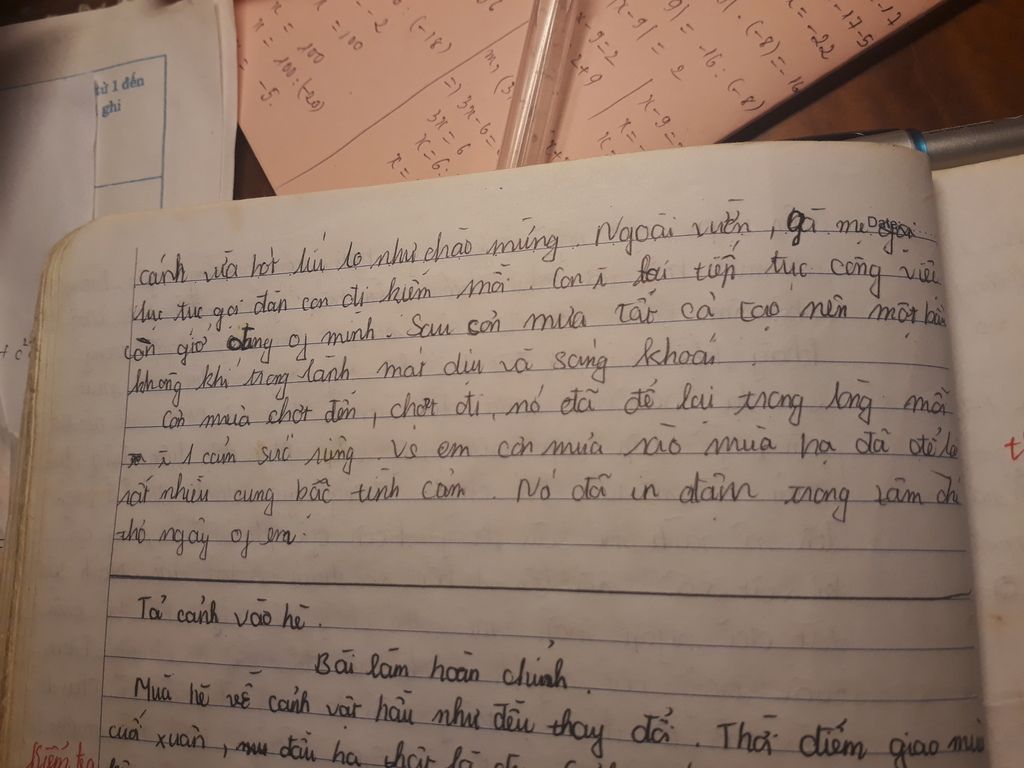 từ 1 đến
ghi
x = 100
x = 100 : (-20)
-5
: (-18)
3x - 6 =
3x = 6
x = 6 :
x - 9 = 2
2 + 9
|x - 9| = 2
= -16 : (-8)
x - 9 =
. (-8) = 16
x = -22
-17-5
-17
Date
cánh vừa hót líu lo như chào mừng. Ngoài vườn, gà mẹ
lục tục gọi đàn con đi kiếm mồi. Con lại tiếp tục công việc
còn giở của mình. Sau cơn mưa tất cả tạo nên một bầu
không khí trong lành mát dịu và sảng khoái
Cơn mưa chợt đến, chợt đi, nó đã để lại trong lòng mỗi
1 cảm súc riêng. Vs em cơn mưa rào mùa hạ đã để lạ
rất nhiều cung bậc tình cảm. Nó đã in đậm trong tâm
thơ ngây of em.
Tả cảnh vào hè.
Bài làm hoàn chỉnh.
Mùa hè về cảnh vật hầu như đều thay đổi. Thời điểm giao mùa
cuối xuân, đầu hạ thật là
kiểm tra